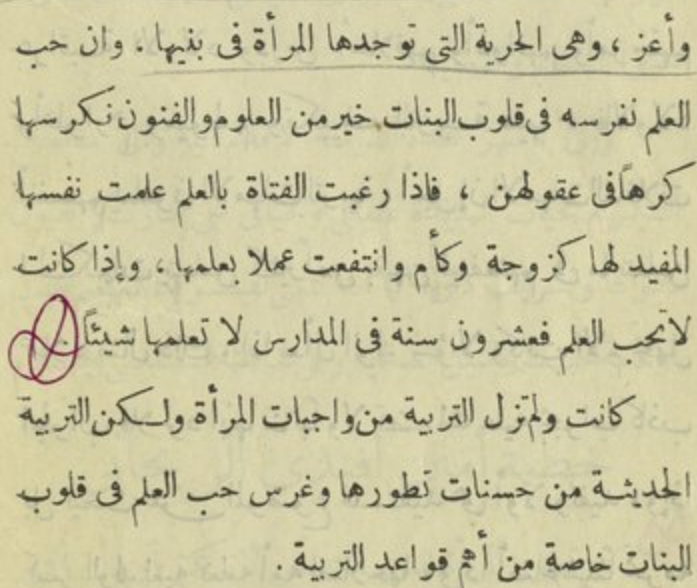 وأعز ، وهى الحرية التى توجدها المرأة فى بنيها . وان حب
العلم نغرسه فى قلوب البنات خير من العلوم والفنون نكرسها
كرهاً فى عقولهن ، فاذا رغبت الفتاة بالعلم علمت نفسها
المفيد لها كزوجة وكأم وانتفعت عملا بعلمها ، وإذا كانت
لا تحب العلم فعشرون سنة فى المدارس لا تعلمها شيئاً .
كانت ولم تزل التربية من واجبات المرأة ولكن التربية
الحديثة من حسنات تطورها وغرس حب العلم فى قلوب
البنات خاصة من أهم قواعد التربية .